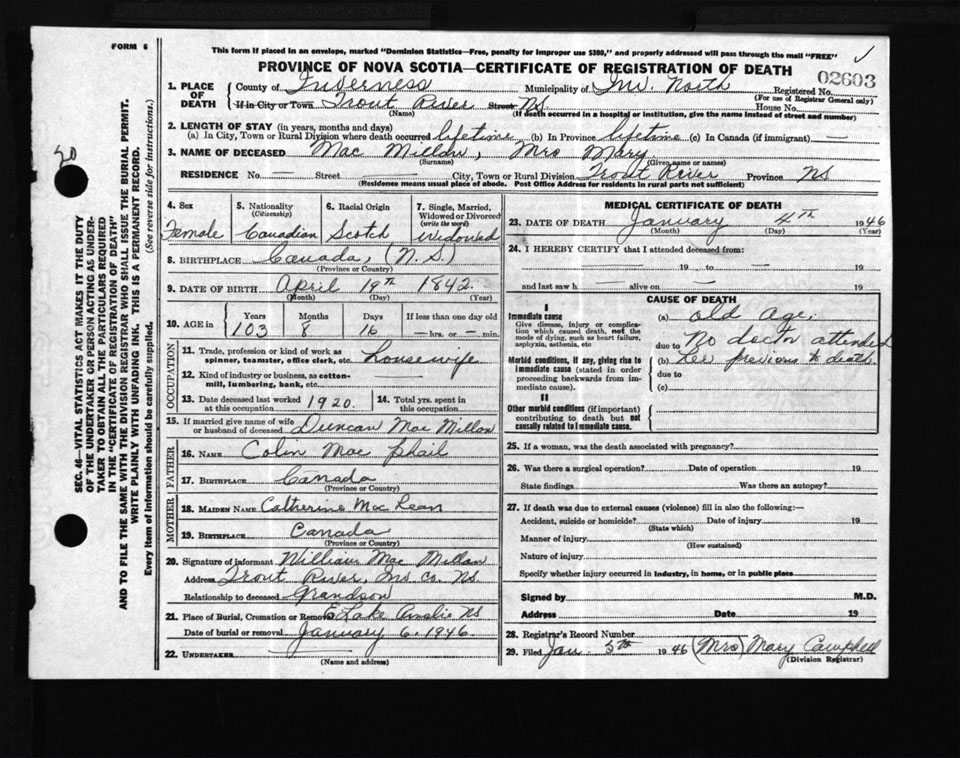 FORM 6
This form if placed in an envelope, marked "Dominion Statistics—Free, penalty for improper use $300," and properly addressed will pass through the mail "FREE"
PROVINCE OF NOVA SCOTIA—CERTIFICATE OF REGISTRATION OF DEATH
02603
1. PLACE OF DEATH
County of Inverness Municipality of Inv. North Registered No.
(For use of Registrar General only)
If in City or Town Trout River Street NS. House No.
(Name) (If death occurred in a hospital or institution, give the name instead of street and number)
2. LENGTH OF STAY (in years, months and days)
(a) In City, Town or Rural Division where death occurred lifetime (b) In Province lifetime (c) In Canada (if immigrant) —
3. NAME OF DECEASED Mac Millan, Mrs Mary
(Surname) (Given name or names)
RESIDENCE No. — Street — City, Town or Rural Division Trout River Province NS
(Residence means usual place of abode. Post Office Address for residents in rural parts not sufficient)
4. Sex Female
5. Nationality (Citizenship) Canadian
6. Racial Origin Scotch
7. Single, Married, Widowed or Divorced (write the word) Widowed
8. BIRTHPLACE Canada, (N.S.)
(Province or Country)
9. DATE OF BIRTH April 19th 1842
(Month) (Day) (Year)
10. AGE in Years 103 Months 8 Days 16 If less than one day old — hrs. or — min.
OCCUPATION
11. Trade, profession or kind of work as spinner, teamster, office clerk, etc. housewife
12. Kind of industry or business, as cotton-mill, lumbering, bank, etc.
13. Date deceased last worked at this occupation 1920.
14. Total yrs. spent in this occupation
15. If married give name of wife or husband of deceased Duncan Mac Millan
FATHER
16. NAME Colin Mac Phail
17. BIRTHPLACE Canada
(Province or Country)
MOTHER
18. MAIDEN NAME Catherine Mac Lean
19. BIRTHPLACE Canada
(Province or Country)
20. Signature of informant William Mac Millan
Address Trout River, Inv. Co. NS.
Relationship to deceased Grandson
21. Place of Burial, Cremation or Removal E Lake Ainslie NS
Date of burial or removal January 6, 1946
22. UNDERTAKER
(Name and address)
MEDICAL CERTIFICATE OF DEATH
23. DATE OF DEATH January 4th 1946
(Month) (Day) (Year)
24. I HEREBY CERTIFY that I attended deceased from:
— 19 — to — 19
and last saw h— alive on — 19
CAUSE OF DEATH
I
Immediate cause
Give disease, injury or complication which caused death, not the mode of dying, such as heart failure, asphyxia, asthenia, etc
(a) old age.
due to No doctor attended
Morbid conditions, if any, giving rise to immediate cause (stated in order proceeding backwards from immediate cause).
(b) her previous to death.
due to
(c)
II
Other morbid conditions (if important) contributing to death but not causally related to immediate cause.
25. If a woman, was the death associated with pregnancy?
26. Was there a surgical operation? Date of operation 19
State findings Was there an autopsy?
27. If death was due to external causes (violence) fill in also the following:—
Accident, suicide or homicide? Date of injury 19
(State which)
Manner of injury
(How sustained)
Nature of injury
Specify whether injury occurred in industry, in home, or in public place
Signed by M.D.
Address Date 19
28. Registrar's Record Number
29. Filed Jan. 5th 1946 (Mrs) Mary Campbell
(Division Registrar)
SEC. 46—VITAL STATISTICS ACT MAKES IT THE DUTY
OF THE UNDERTAKER OR PERSON ACTING AS UNDER-
TAKER TO OBTAIN ALL THE PARTICULARS REQUIRED
IN THE "CERTIFICATE OF REGISTRATION OF DEATH"
AND TO FILE THE SAME WITH THE DIVISION REGISTRAR WHO SHALL ISSUE THE BURIAL PERMIT.
WRITE PLAINLY WITH UNFADING INK. THIS IS A PERMANENT RECORD.
Every item of information should be carefully supplied. (See reverse side for instructions.)